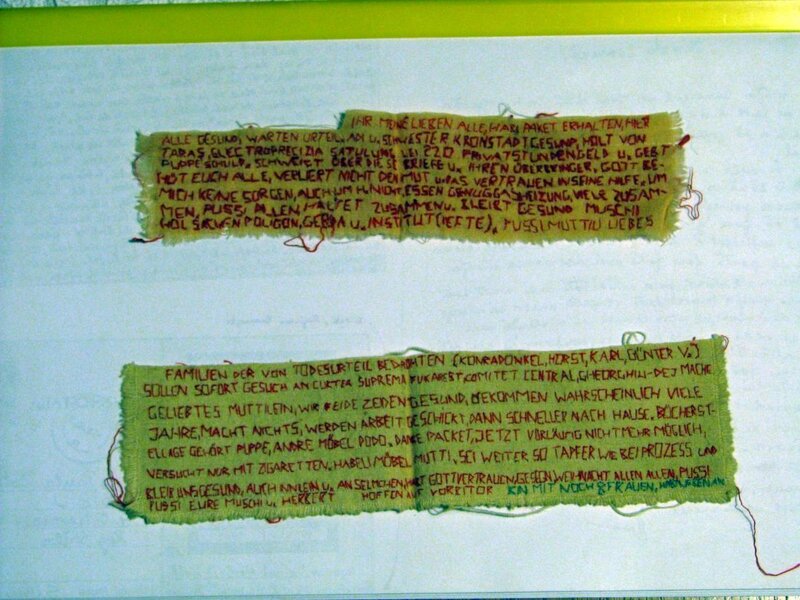 IHR MEINE LIEBEN ALLE, HABE PAKET ERHALTEN, HIER
ALLE GESUND, WARTEN URTEIL. ADI U. SCHWESTER KRONSTADT GESUND, HOLT VON
FARAS, ELECTROPRECIZIA SATZULUNG, LEI 220 PRIVATSTUNDENGELD U. GEBT
PUPPE SCHULD, SCHWEIGT ÜBER DIESE BRIEFE U. IHREN ÜBERBRINGER, GOTT BE-
HÜT EUCH ALLE, VERLIERT NICHT DEN MUT U. DAS VERTRAUEN IN SEINE HILFE, UM
MICH KEINE SORGEN, AUCH UM H. NICHT, ESSEN GENUG, GASHEIZUNG, VIELE ZUSAM-
MEN, PUSSI ALLEN, HALTET ZUSAMMEN U. BLEIBT GESUND MUSCHI
HOLSACHEN POLIGON, GERDA U. INSTITUT (HEFTE), PUSSI MUTTI U LIEBES
FAMILIEN DER VON TODESURTEIL BEDROHTEN (KONRAD ONKEL, HORST, KARL, GÜNTER V.)
SOLLEN SOFORT GESUCH AN CURTEA SUPREMA BUKAREST, COMITET CENTRAL, GHEORGHIU-DEJ MACHE
GELIEBTES MUTTILEIN, WIR BEIDE ZEIDEN GESUND, BEKOMMEN WAHRSCHEINLICH VIELE
JAHRE, MACHT NICHTS, WERDEN ARBEIT GESCHICKT, DANN SCHNELLER NACH HAUSE. BÜCHERST-
ELLAGE GEHÖRT PUPPE, ANDRE MÖBEL DODO. DANKE PACKET, JETZT VORLÄUFIG NICHT MEHR MÖGLICH,
VERSUCHT NUR MIT ZIGARETTEN. HABEL MÖBEL MUTTI, SEI WEITER SO TAPFER WIE BEI PROZESS UND
BLEIB UNS GESUND, AUCH INNLEIN U. ANSELMCHEN, HABT GOTTVERTRAUEN, GESEGN. WEIHNACHT ALLEN ALLEN, PUSSI
PUSSI EURE MUSCHI U. HERBERT HOFFEN AUF VORBITOR BIN MIT NOCH 8 FRAUEN, HABEN